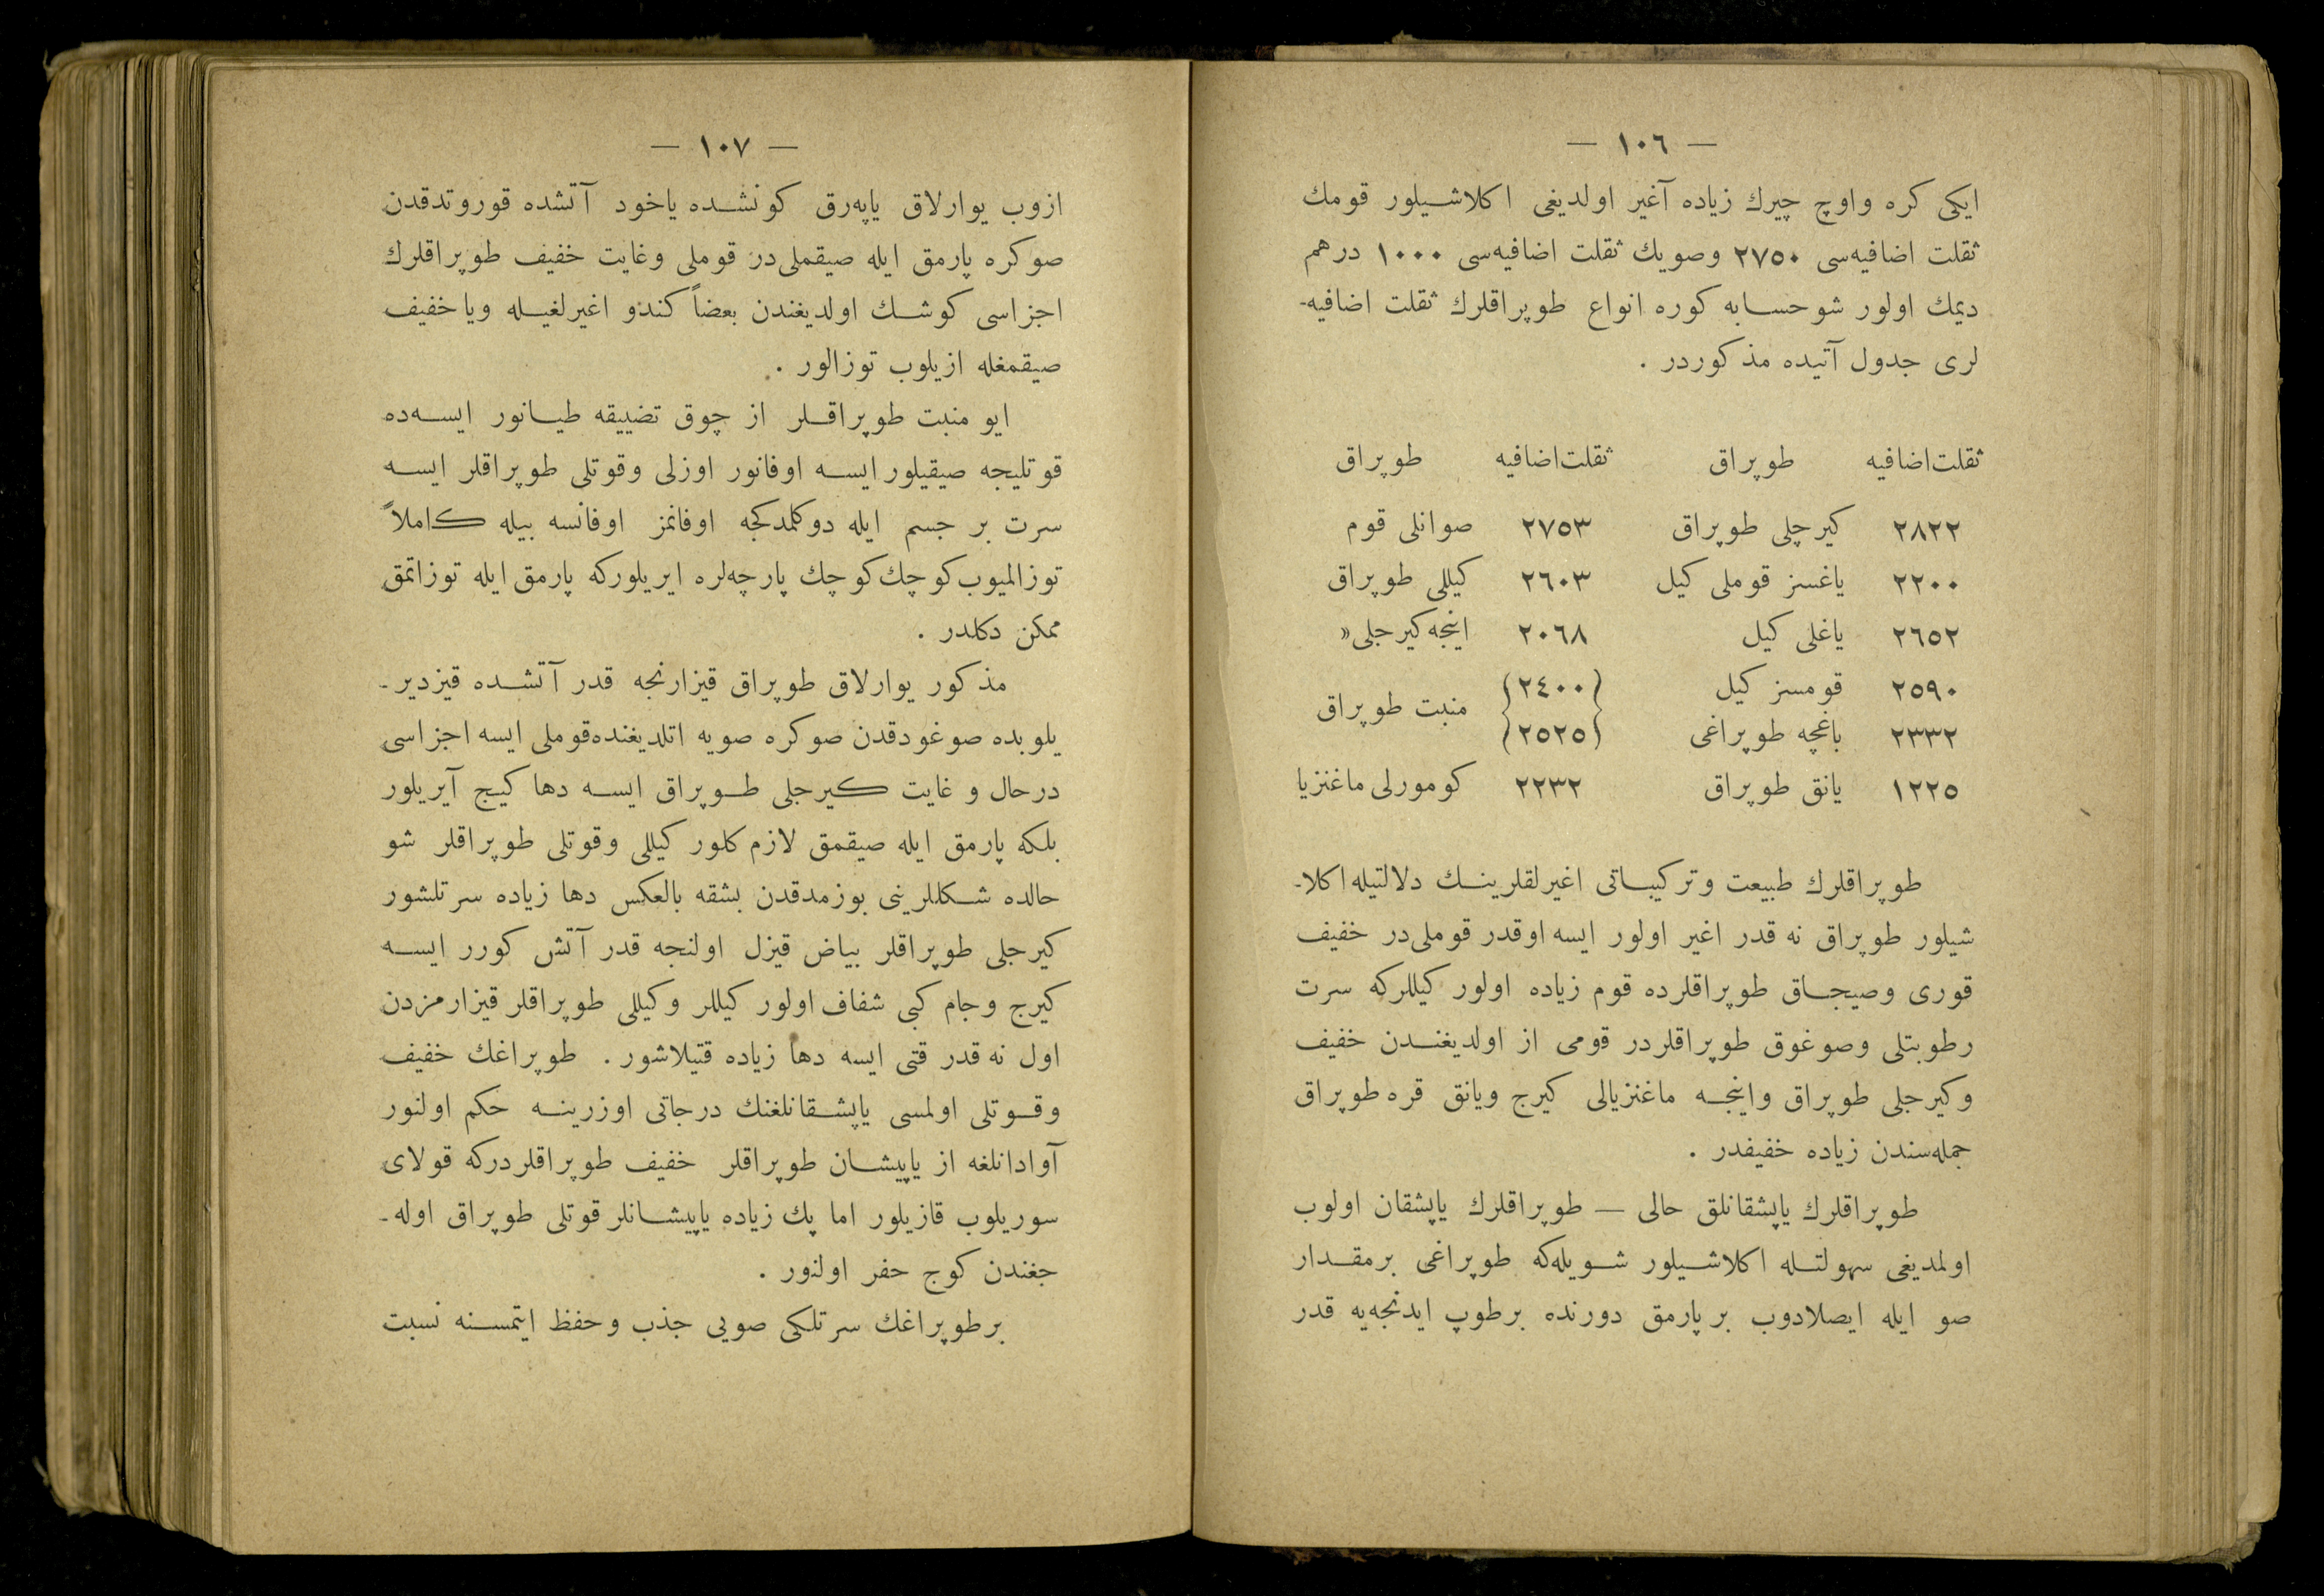 — ١٠٦ —
ایکی کره واوچ چیرك زیاده آغیر اولدیغی اکلاشیلور قومك
ثقلت اضافیه‌سی ٢٧٥٠ وصویك ثقلت اضافیه‌سی ١٠٠٠ درهم
دیمك اولور شو حسابه کوره انواع طوپراقلرك ثقلت اضافیه-
لری جدول آتیده مذکوردر .
ثقلت اضافیه طوپراق ثقلت اضافیه طوپراق
٢٨٢٢ کیرچلی طوپراق ٢٧٥٣ صوانلی قوم
٢٢٠٠ یاغسز قوملی کیل ٢٦٠٣ کیللی طوپراق
٢٦٥٢ یاغلی کیل ٢٠٦٨ اینجه کیرجلی »
٢٥٩٠ قومسز کیل {٢٤٠٠
منبت طوپراق
٢٣٣٢ باغچه طوپراغی {٢٥٢٥
١٢٢٥ یانق طوپراق ٢٢٣٢ کومورلی ماغنزیا
طوپراقلرك طبیعت وترکیباتی اغیرلقلرینك دلالتیله اکلا-
شیلور طوپراق نه قدر اغیر اولور ایسه اوقدر قوملی‌در خفیف
قوری وصیجاق طوپراقلرده قوم زیاده اولور کیللرکه سرت
رطوبتلی وصوغوق طوپراقلردر قومی از اولدیغندن خفیف
وکیرجلی طوپراق واینجه ماغنزیالی کیرج ویانق قره طوپراق
جمله‌سندن زیاده خفیفدر .
طوپراقلرك یاپشقانلق حالی — طوپراقلرك یاپشقان اولوب
اولمدیغی سهولتله اکلاشیلور شویله‌که طوپراغی برمقدار
صو ایله ایصلادوب بر پارمق دورنده برطوپ ایدنجه‌یه قدر
— ١٠٧ —
ازوب یوارلاق یاپه‌رق کونشده یاخود آتشده قوروتدقدن
صوکره پارمق ایله صیقملی‌در قوملی وغایت خفیف طوپراقلرك
اجزاسی کوشك اولدیغندن بعضاً کندو اغیرلغیله ویا خفیف
صیقمغله ازیلوب توزالور .
ایو منبت طوپراقلر از چوق تضییقه طیانور ایسه‌ده
قوتلیجه صیقیلور ایسه اوفانور اوزلی وقوتلی طوپراقلر ایسه
سرت بر جسم ایله دوکلمدکجه اوفانمز اوفانسه بیله کاملاً
توزالمیوب کوچك کوچك پارچه‌لره ایریلورکه پارمق ایله توزاتمق
ممکن دکلدر .
مذکور یوارلاق طوپراق قیزارنجه قدر آتشده قیزدیر-
یلوبده صوغودقدن صوکره صویه اتلدیغنده قوملی ایسه اجزاسی
درحال و غایت کیرجلی طوپراق ایسه دها کیج آیریلور
بلکه پارمق ایله صیقمق لازم کلور کیللی وقوتلی طوپراقلر شو
حالده شکللرینی بوزمدقدن بشقه بالعکس دها زیاده سرتلشور
کیرجلی طوپراقلر بیاض قیزل اولنجه قدر آتش کورر ایسه
کیرج وجام کبی شفاف اولور کیللر وکیللی طوپراقلر قیزارمزدن
اول نه قدر قتی ایسه دها زیاده قتیلاشور . طوپراغك خفیف
وقوتلی اولمسی یاپشقانلغنك درجاتی اوزرینه حکم اولنور
آوادانلغه از یاپیشان طوپراقلر خفیف طوپراقلردرکه قولای
سوریلوب قازیلور اما پك زیاده یاپیشانلر قوتلی طوپراق اوله-
جغندن کوج حفر اولنور .
برطوپراغك سرتلکی صویی جذب وحفظ ایتمسنه نسبت